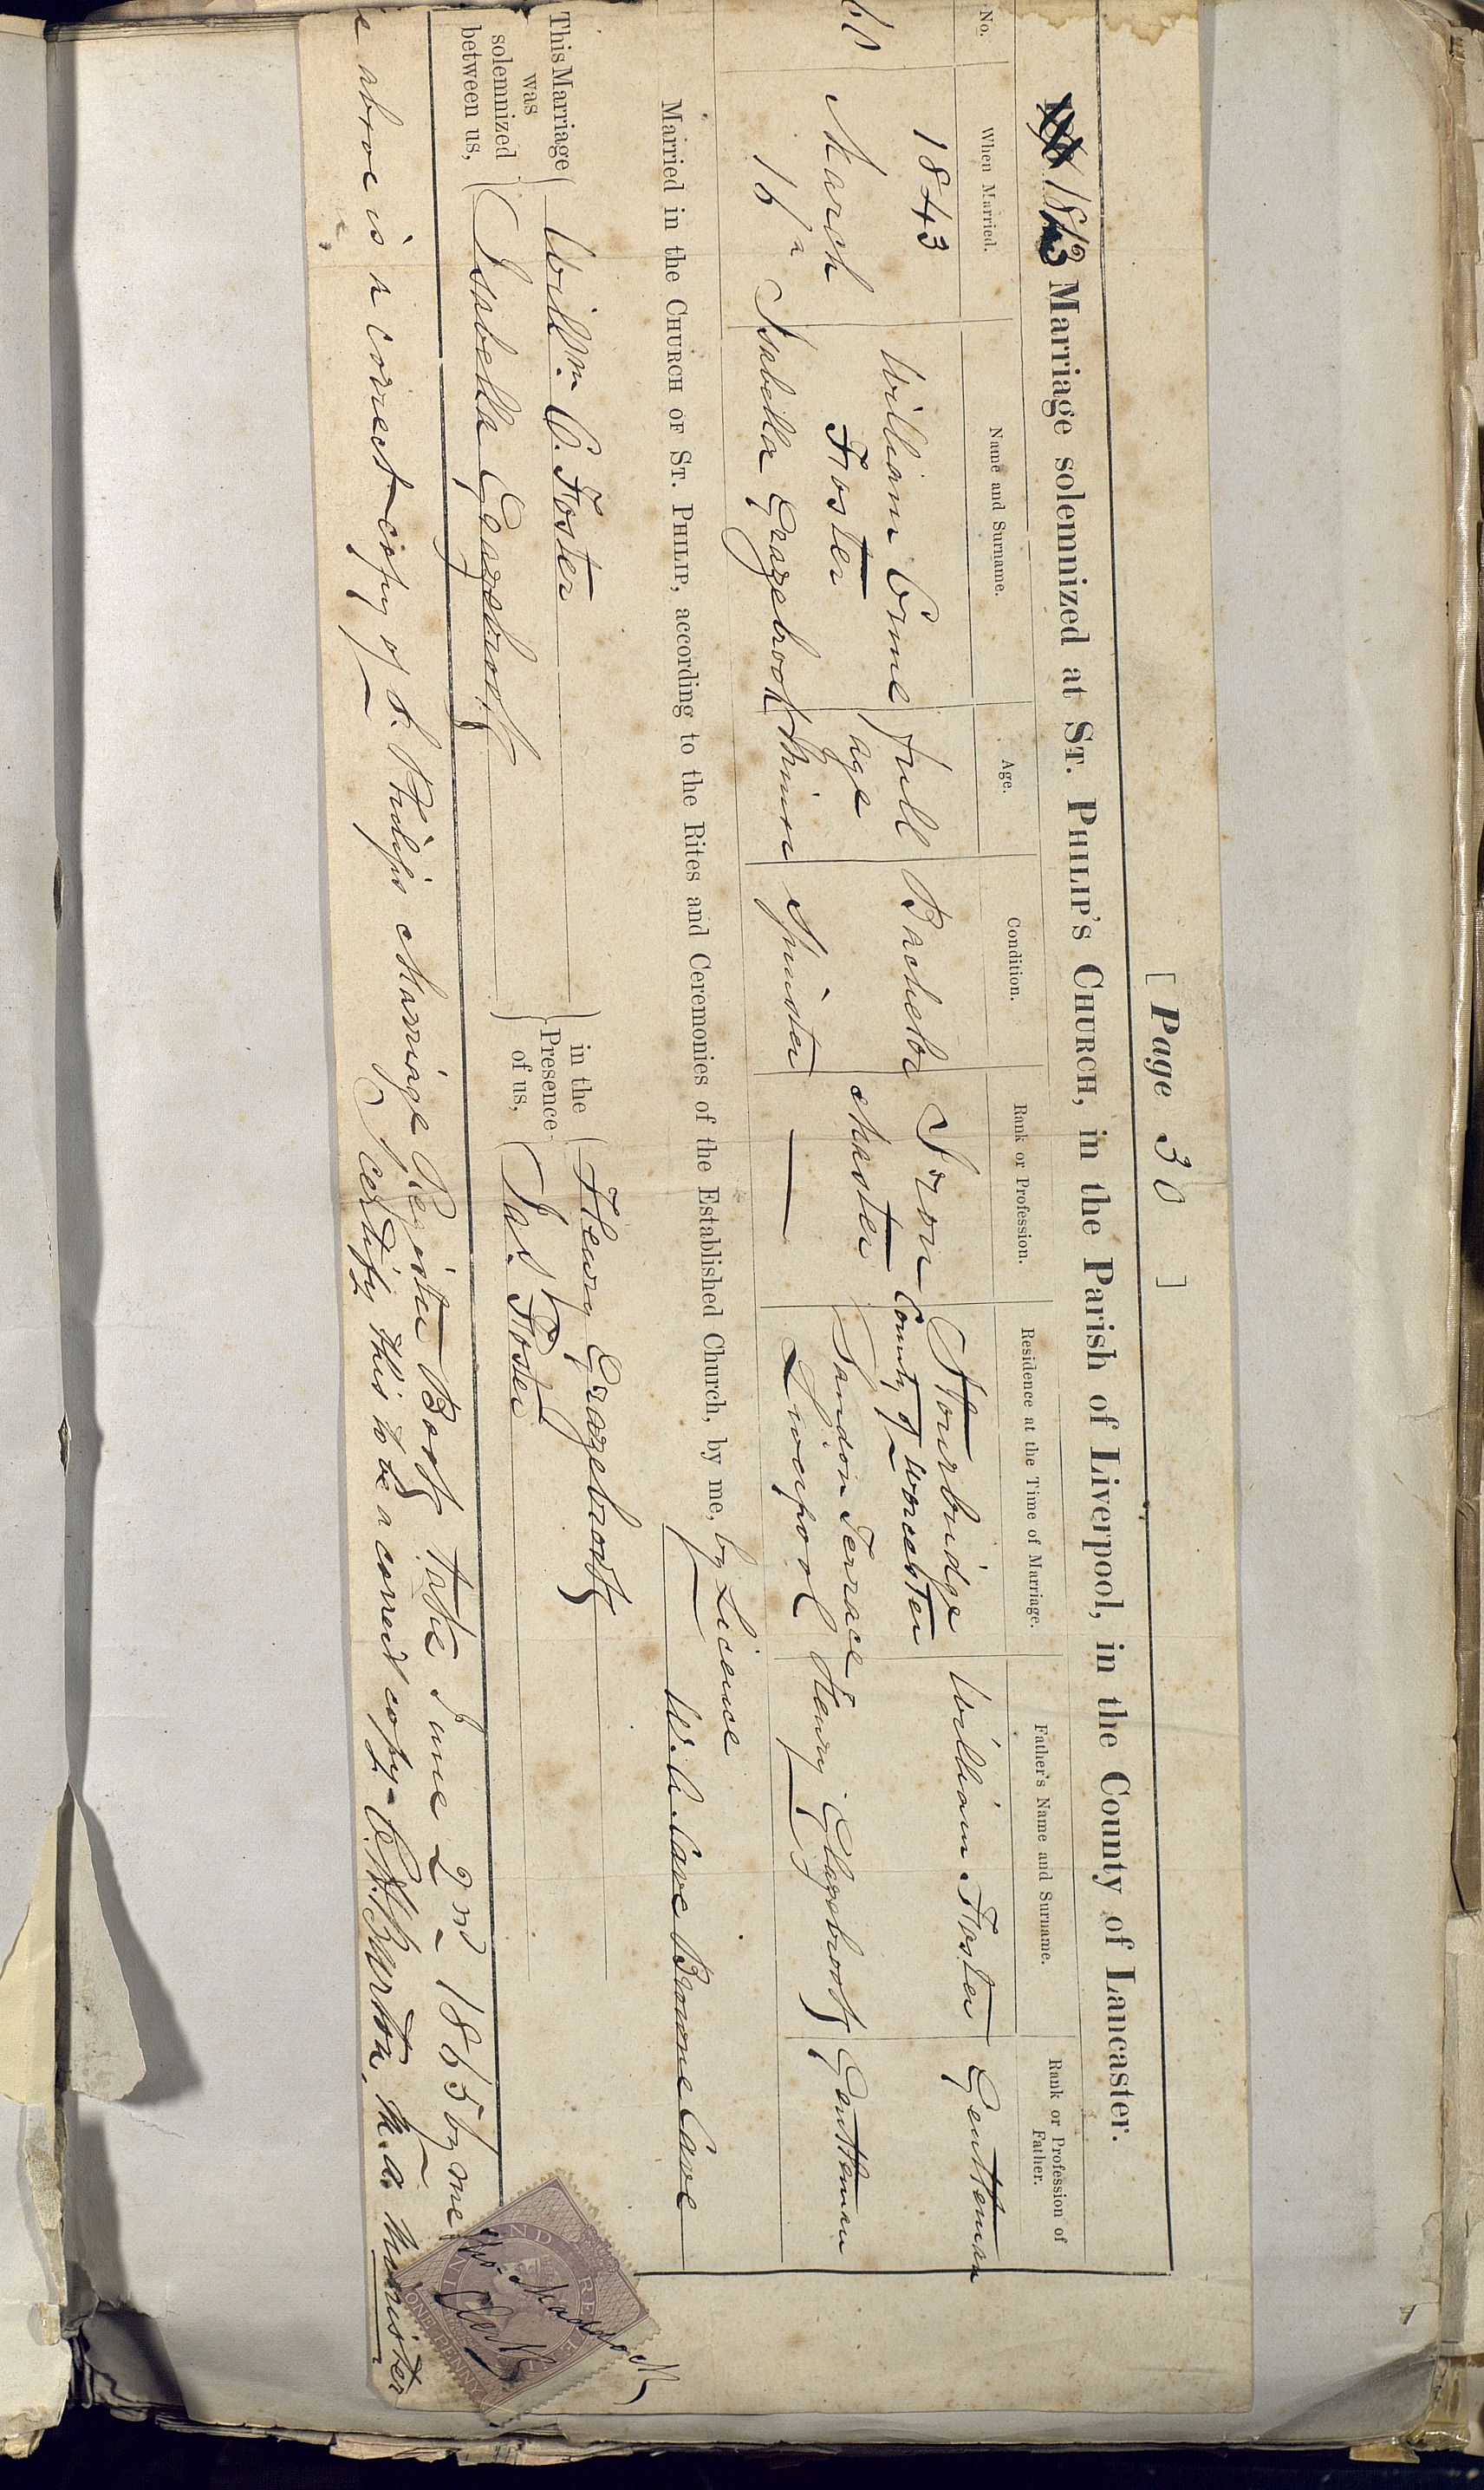 [ Page 30 ]
1843 Marriage solemnized at St. Philip's Church, in the Parish of Liverpool, in the County of Lancaster.
No. When Married. Name and Surname. Age. Condition. Rank or Profession. Residence at the Time of Marriage. Father's Name and Surname. Rank or Profession of Father.
1843 William Orme full Bachelor Iron Stourbridge William Foster Gentleman
County of Worcester
March Foster age Master
Sandon Terrace
16 Isabella Grazebrook Minor Spinster — Liverpool Henry Grazebrook Gentleman
Married in the Church of St. Philip, according to the Rites and Ceremonies of the Established Church, by me, by Licence
W. A. Cave Browne Cave
This Marriage was solemnized between us,
Willm. O. Foster
Isabella Grazebrook
in the Presence of us,
Henry Grazebrook
Jas. Foster
above is a correct copy of S. Philips Marriage Register Book Taken June 2nd 1865 by me
I certify this to be a correct copy - Barton, M.A. Minister
INLAND REVENUE
ONE PENNY
Clerk